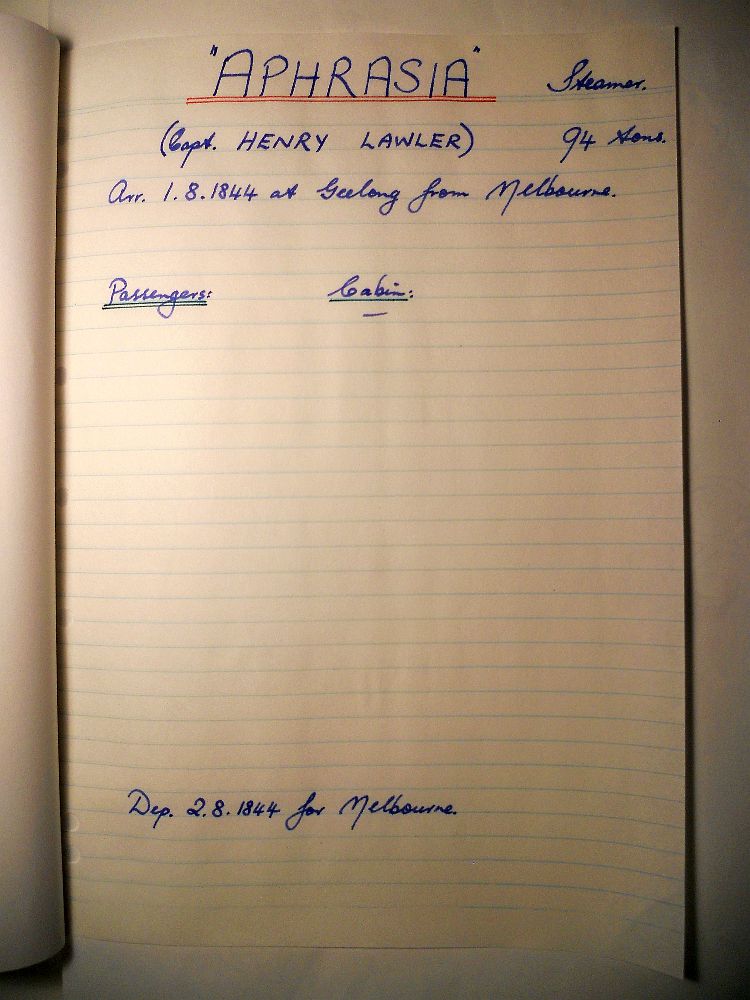 "APHRASIA" Steamer.
(Capt. HENRY LAWLER) 94 tons.
Arr. 1.8.1844 at Geelong from Melbourne.
Passengers: Cabin:
—
Dep. 2.8.1844 for Melbourne.